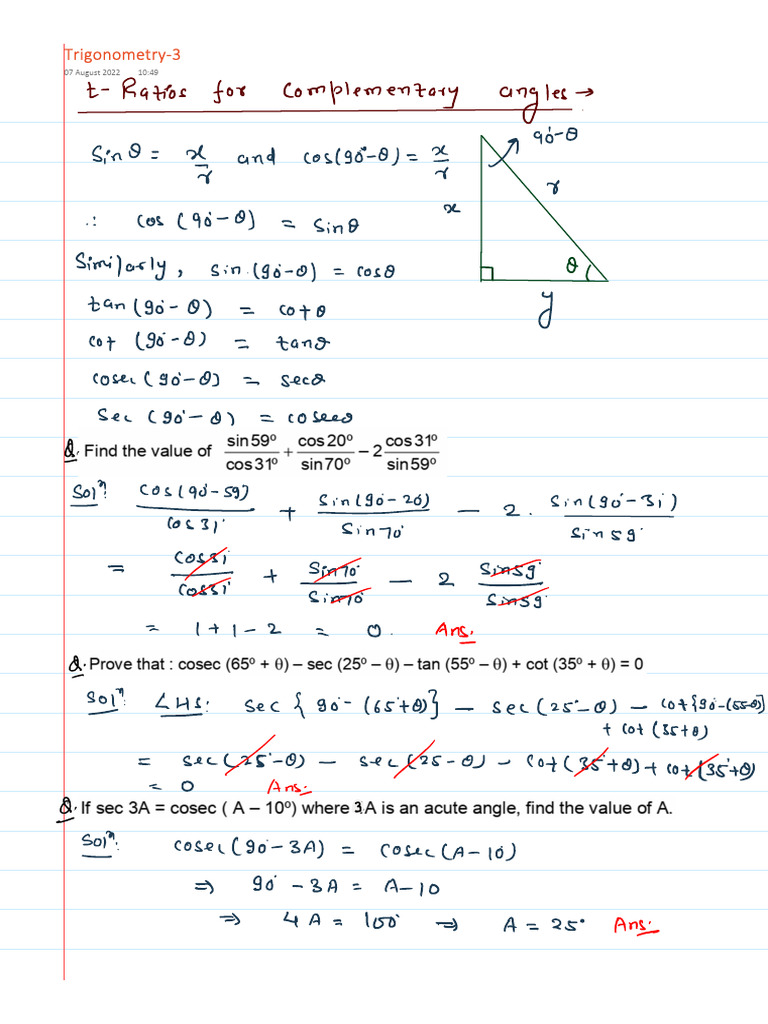 Trigonometry-3
07 August 2022 10:49
t- Ratios for Complementary angles →
Sin θ = x/r and cos(90°-θ) = x/r
90°-θ
x
r
θ
y
∴ cos (90°-θ) = sin θ
Similarly, sin (90°-θ) = cos θ
tan (90°-θ) = cot θ
cot (90°-θ) = tan θ
cosec (90°-θ) = sec θ
Sec (90°-θ) = cosec θ
Q. Find the value of sin 59º/cos 31º + cos 20º/sin 70º – 2 cos 31º/sin 59º
Solⁿ: cos(90°-59)/cos 31° + Sin(90°-20)/Sin 70° - 2. Sin(90°-31)/Sin 59°
= cos 31/cos 31° + Sin 70°/Sin 70° - 2 Sin 59°/Sin 59°
= 1 + 1 - 2 = 0. Ans.
Q. Prove that : cosec (65º + θ) – sec (25º – θ) – tan (55º – θ) + cot (35º + θ) = 0
Solⁿ: LHS: sec {90°-(65°+θ)} - sec (25°-θ) - cot{90-(55-θ)}
+ cot (35+θ)
= sec (25°-θ) - sec (25-θ) - cot (35°+θ) + cot (35°+θ)
= 0 Ans:
Q. If sec 3A = cosec ( A – 10º) where 3A is an acute angle, find the value of A.
Solⁿ: cosec (90°-3A) = cosec (A-10)
⇒ 90° - 3A = A-10
⇒ 4A = 100° ⇒ A = 25° Ans: